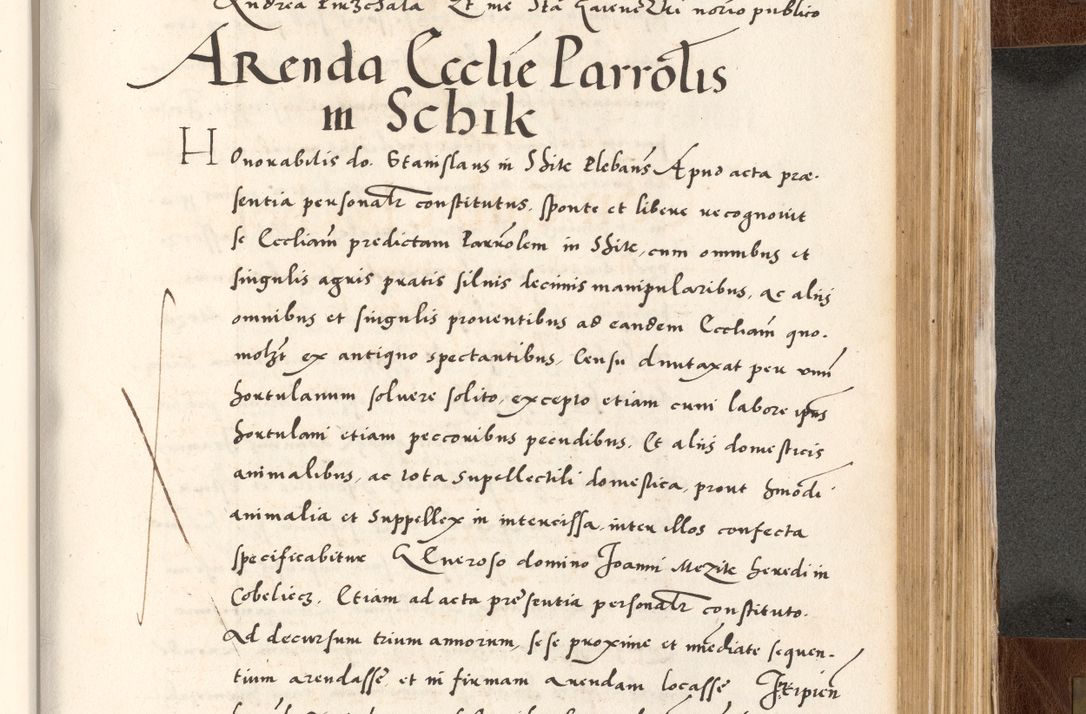 Andrea et me Sta notario publico
ARenda Ecclie Parrolis
in Schik
Honorabilis do. Stanislaus in Shik Plebans Apud acta præ-
sentia personalr constitutus, sponte et libere recognovit
se Eccliam predictam Parrolem in Shik, cum omnibus et
singulis agris pratis silvis decimis manipularibus, ac aliis
omnibus et singulis proventibus ad eandem Eccliam quo-
molzt ex antiquo spectantibus, Censu duntaxat per unum
hortulanum solvere solito, excepto etiam cum labore ipius
hortulani etiam peccoribus pecudibus. Et aliis domesticis
animalibus, ac tota supellectili domestica, prout hmodi
animalia et Suppellex in intercissa inter illos confecta
specificabitur GEneroso domino Joanni Mezik heredi in
Cobeliecz. Etiam ad acta presentia personalr constituto.
Ad decursum trium annorum, sese proxime et mediate sequen-
tium arendasse et in firmam arendam locasse Incipien